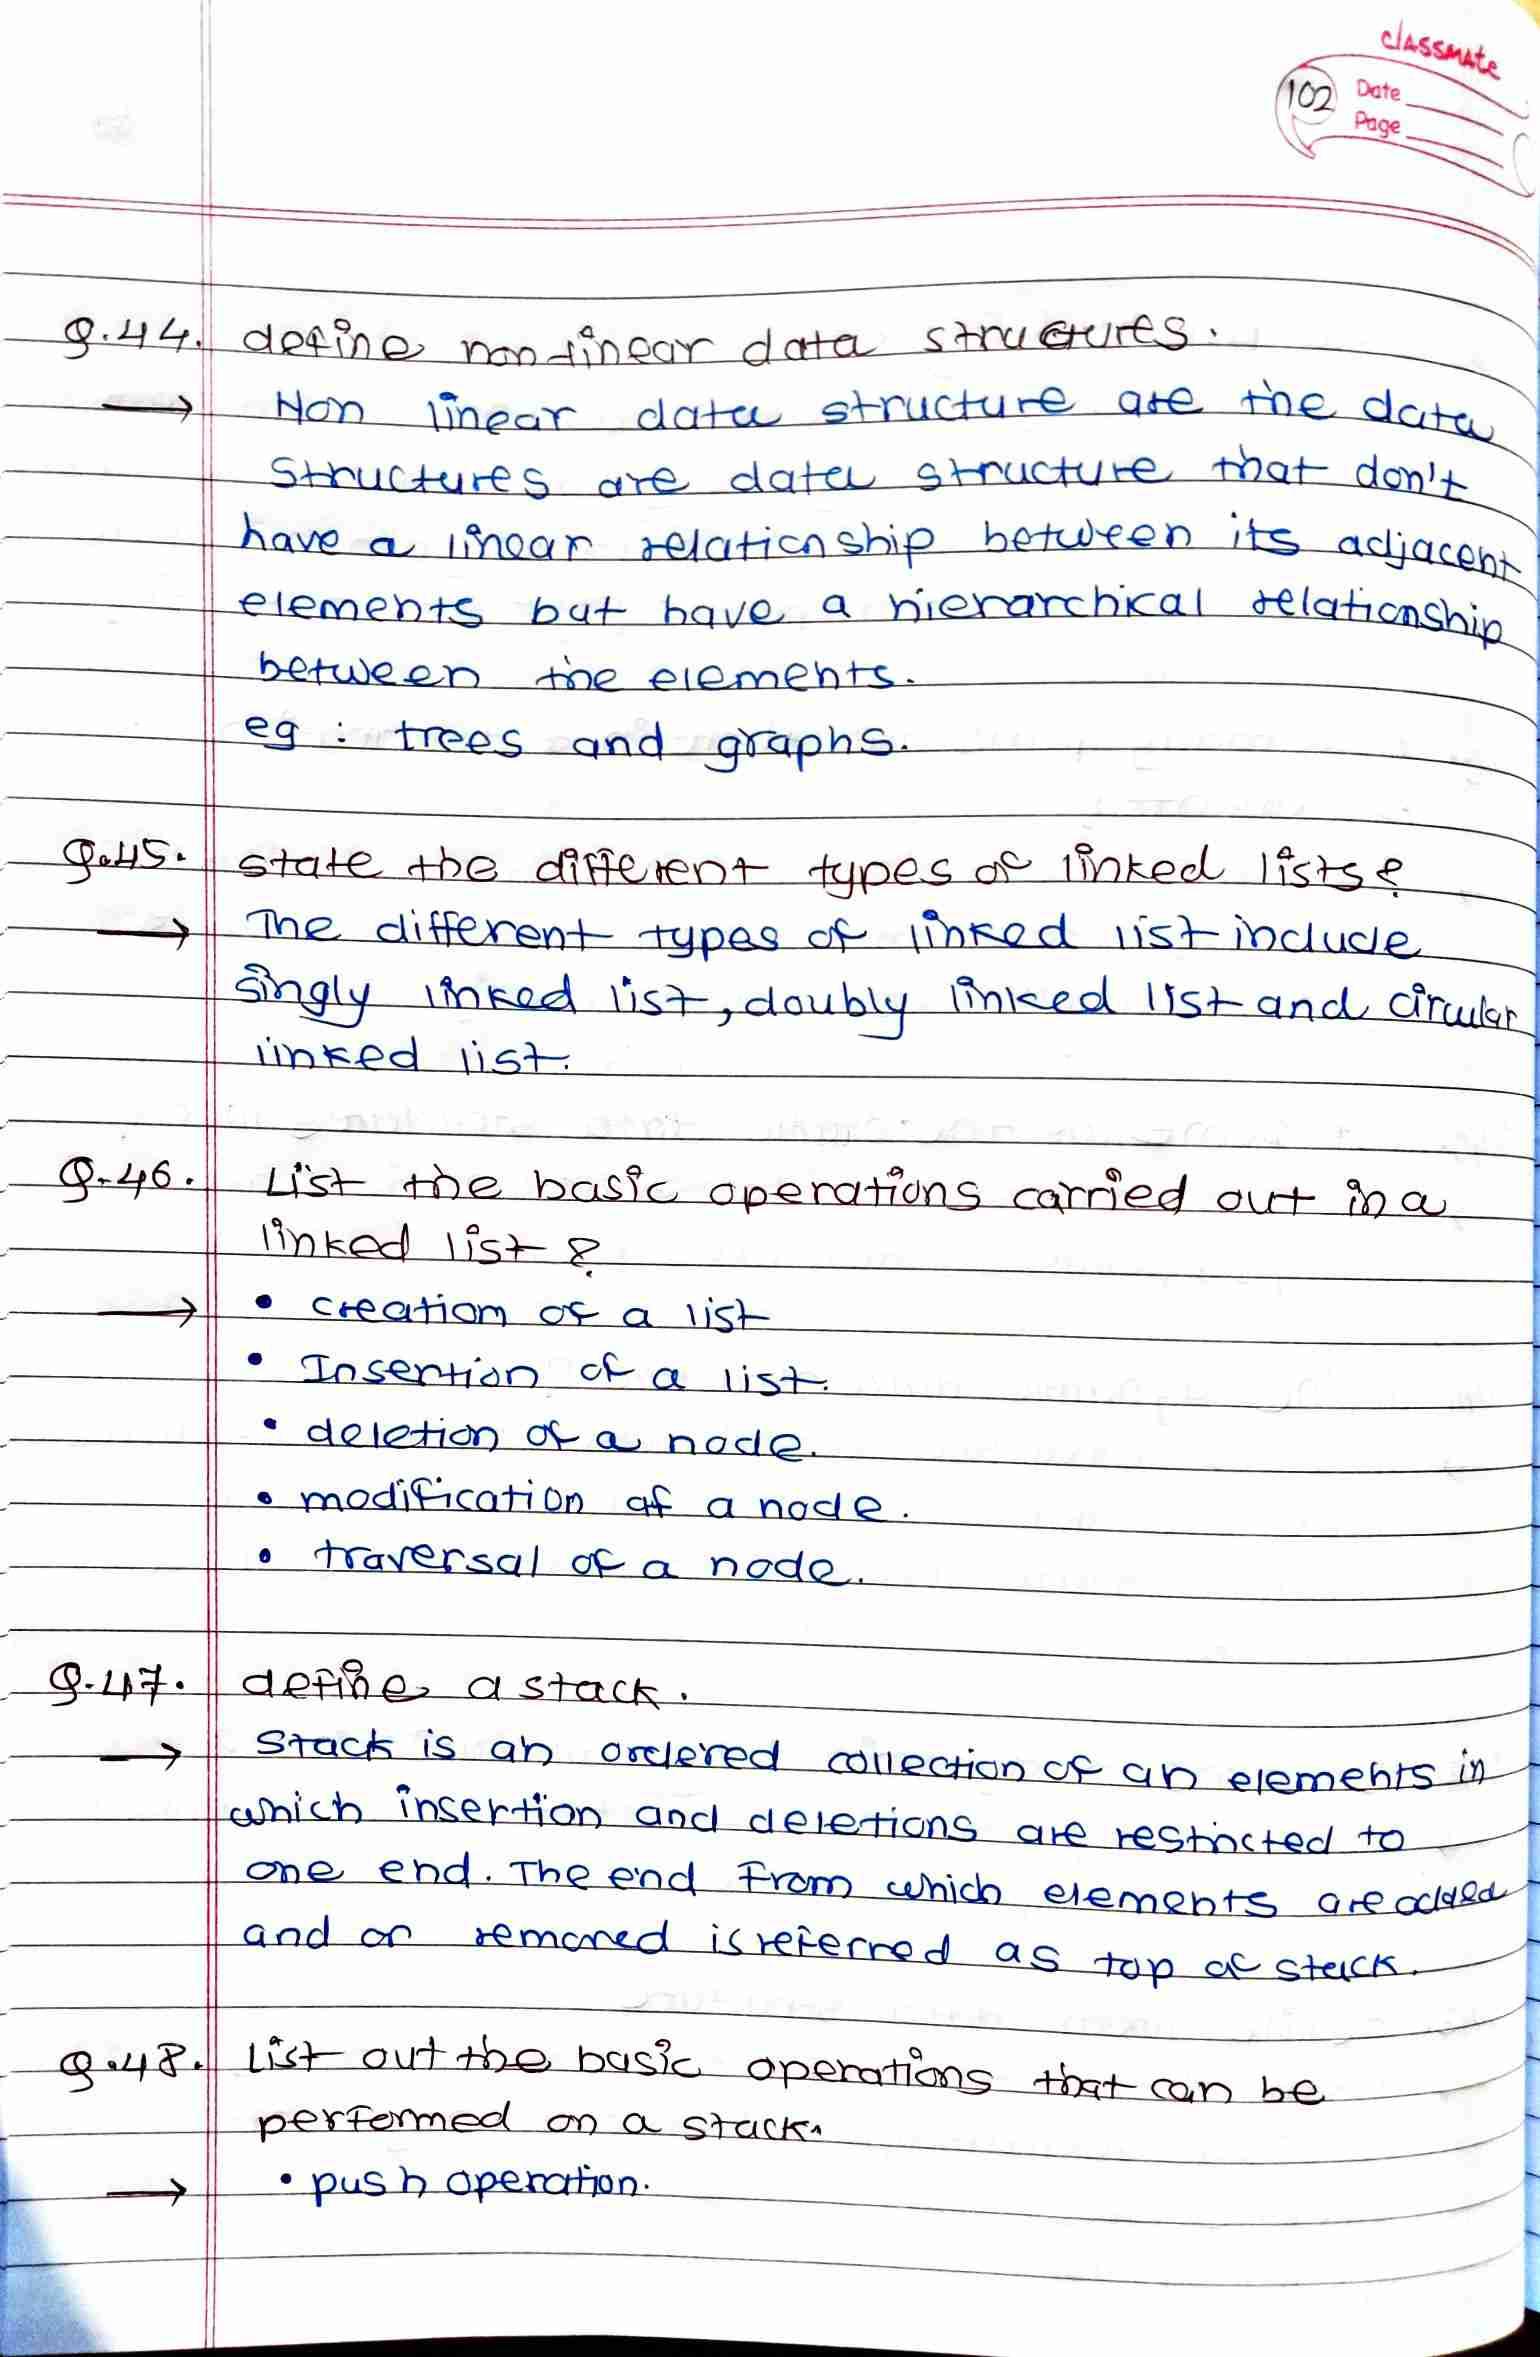 classmate
102 Date
Page
Q.44. define non-linear data structures.
→ Non linear data structure are the data
structures are data structure that don't
have a linear relationship between its adjacent
elements but have a hierarchical relationship
between the elements.
eg : trees and graphs.
Q.45. State the different types of linked lists?
→ The different types of linked list include
singly linked list, doubly linked list and circular
linked list.
Q.46. List the basic operations carried out in a
linked list ?
→ • creation of a list
• Insertion of a list.
• deletion of a node.
• modification of a node.
• traversal of a node.
Q.47. define a stack.
→ Stack is an ordered collection of an elements in
which insertion and deletions are restricted to
one end. The end from which elements are added
and or removed is referred as top of stack.
Q.48. List out the basic operations that can be
performed on a stack.
→ • push operation.